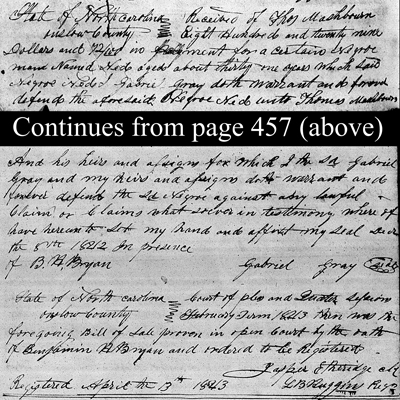 State of North Carolina Received of Thos Mashburn
onslow County Eight Hundred and twenty nine
Dollars and in for a certain Negroe
man Named Ned aged about thirty one years which said
Negroe Ned Gabriel Gray doth warrant and forever
defend the aforesaid Negroe Ned unto Thomas Mashburn
Continues from page 457 (above)
And his heirs and assigns for which I the Sd Gabriel
Gray and my heirs and assigns doth warrant and
forever defend the Sd Negroe against any lawful
Claim or Claims what soever in testimony where of I
have hereunto Set my hand and affixt my Seal Dec
the 5th 1842 In presence
of B. H. Bryan Gabriel Gray Seal
State of North Carolina Court of pleas and Quarter Session
onslow County February Term 1843 then was the
foregoing Bill of Sale proven in open Court by the oath
of Benjamin H Bryan and ordered to be Registered
Jasper Etheridge
Registered April the 13th 1843 L B Huggins Regr